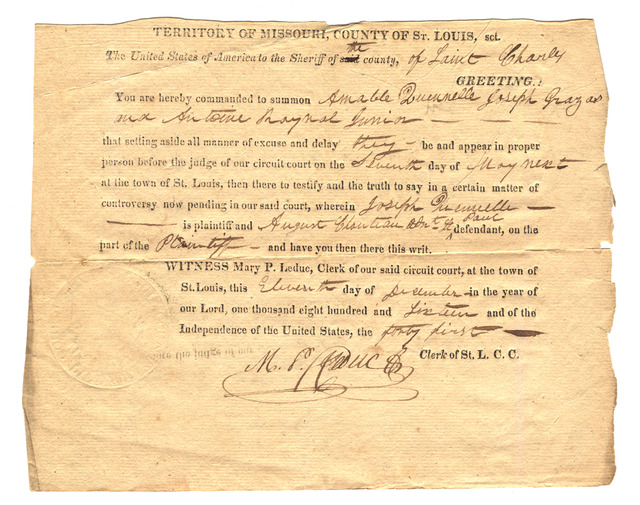 TERRITORY OF MISSOURI, COUNTY OF ST. LOUIS, sct.
The United States of America to the Sheriff of said the county, of Saint Charles
GREETING.
You are hereby commanded to summon Amable Quennelle Joseph
and Antoine Raynal Junior
that setting aside all manner of excuse and delay they be and appear in proper
person before the judge of our circuit court on the Seventh day of May next
at the town of St. Louis, then there to testify and the truth to say in a certain matter of
controversy now pending in our said court, wherein Joseph Quennelle
is plaintiff and August Chouteau defendant, on the
part of the Plaintiff and have you then there this writ.
WITNESS Mary P. Leduc, Clerk of our said circuit court, at the town of
St. Louis, this Eleventh day of December in the year of
our Lord, one thousand eight hundred and Sixteen and of the
Independence of the United States, the forty first
M. P. Leduc Clerk of St. L. C. C.